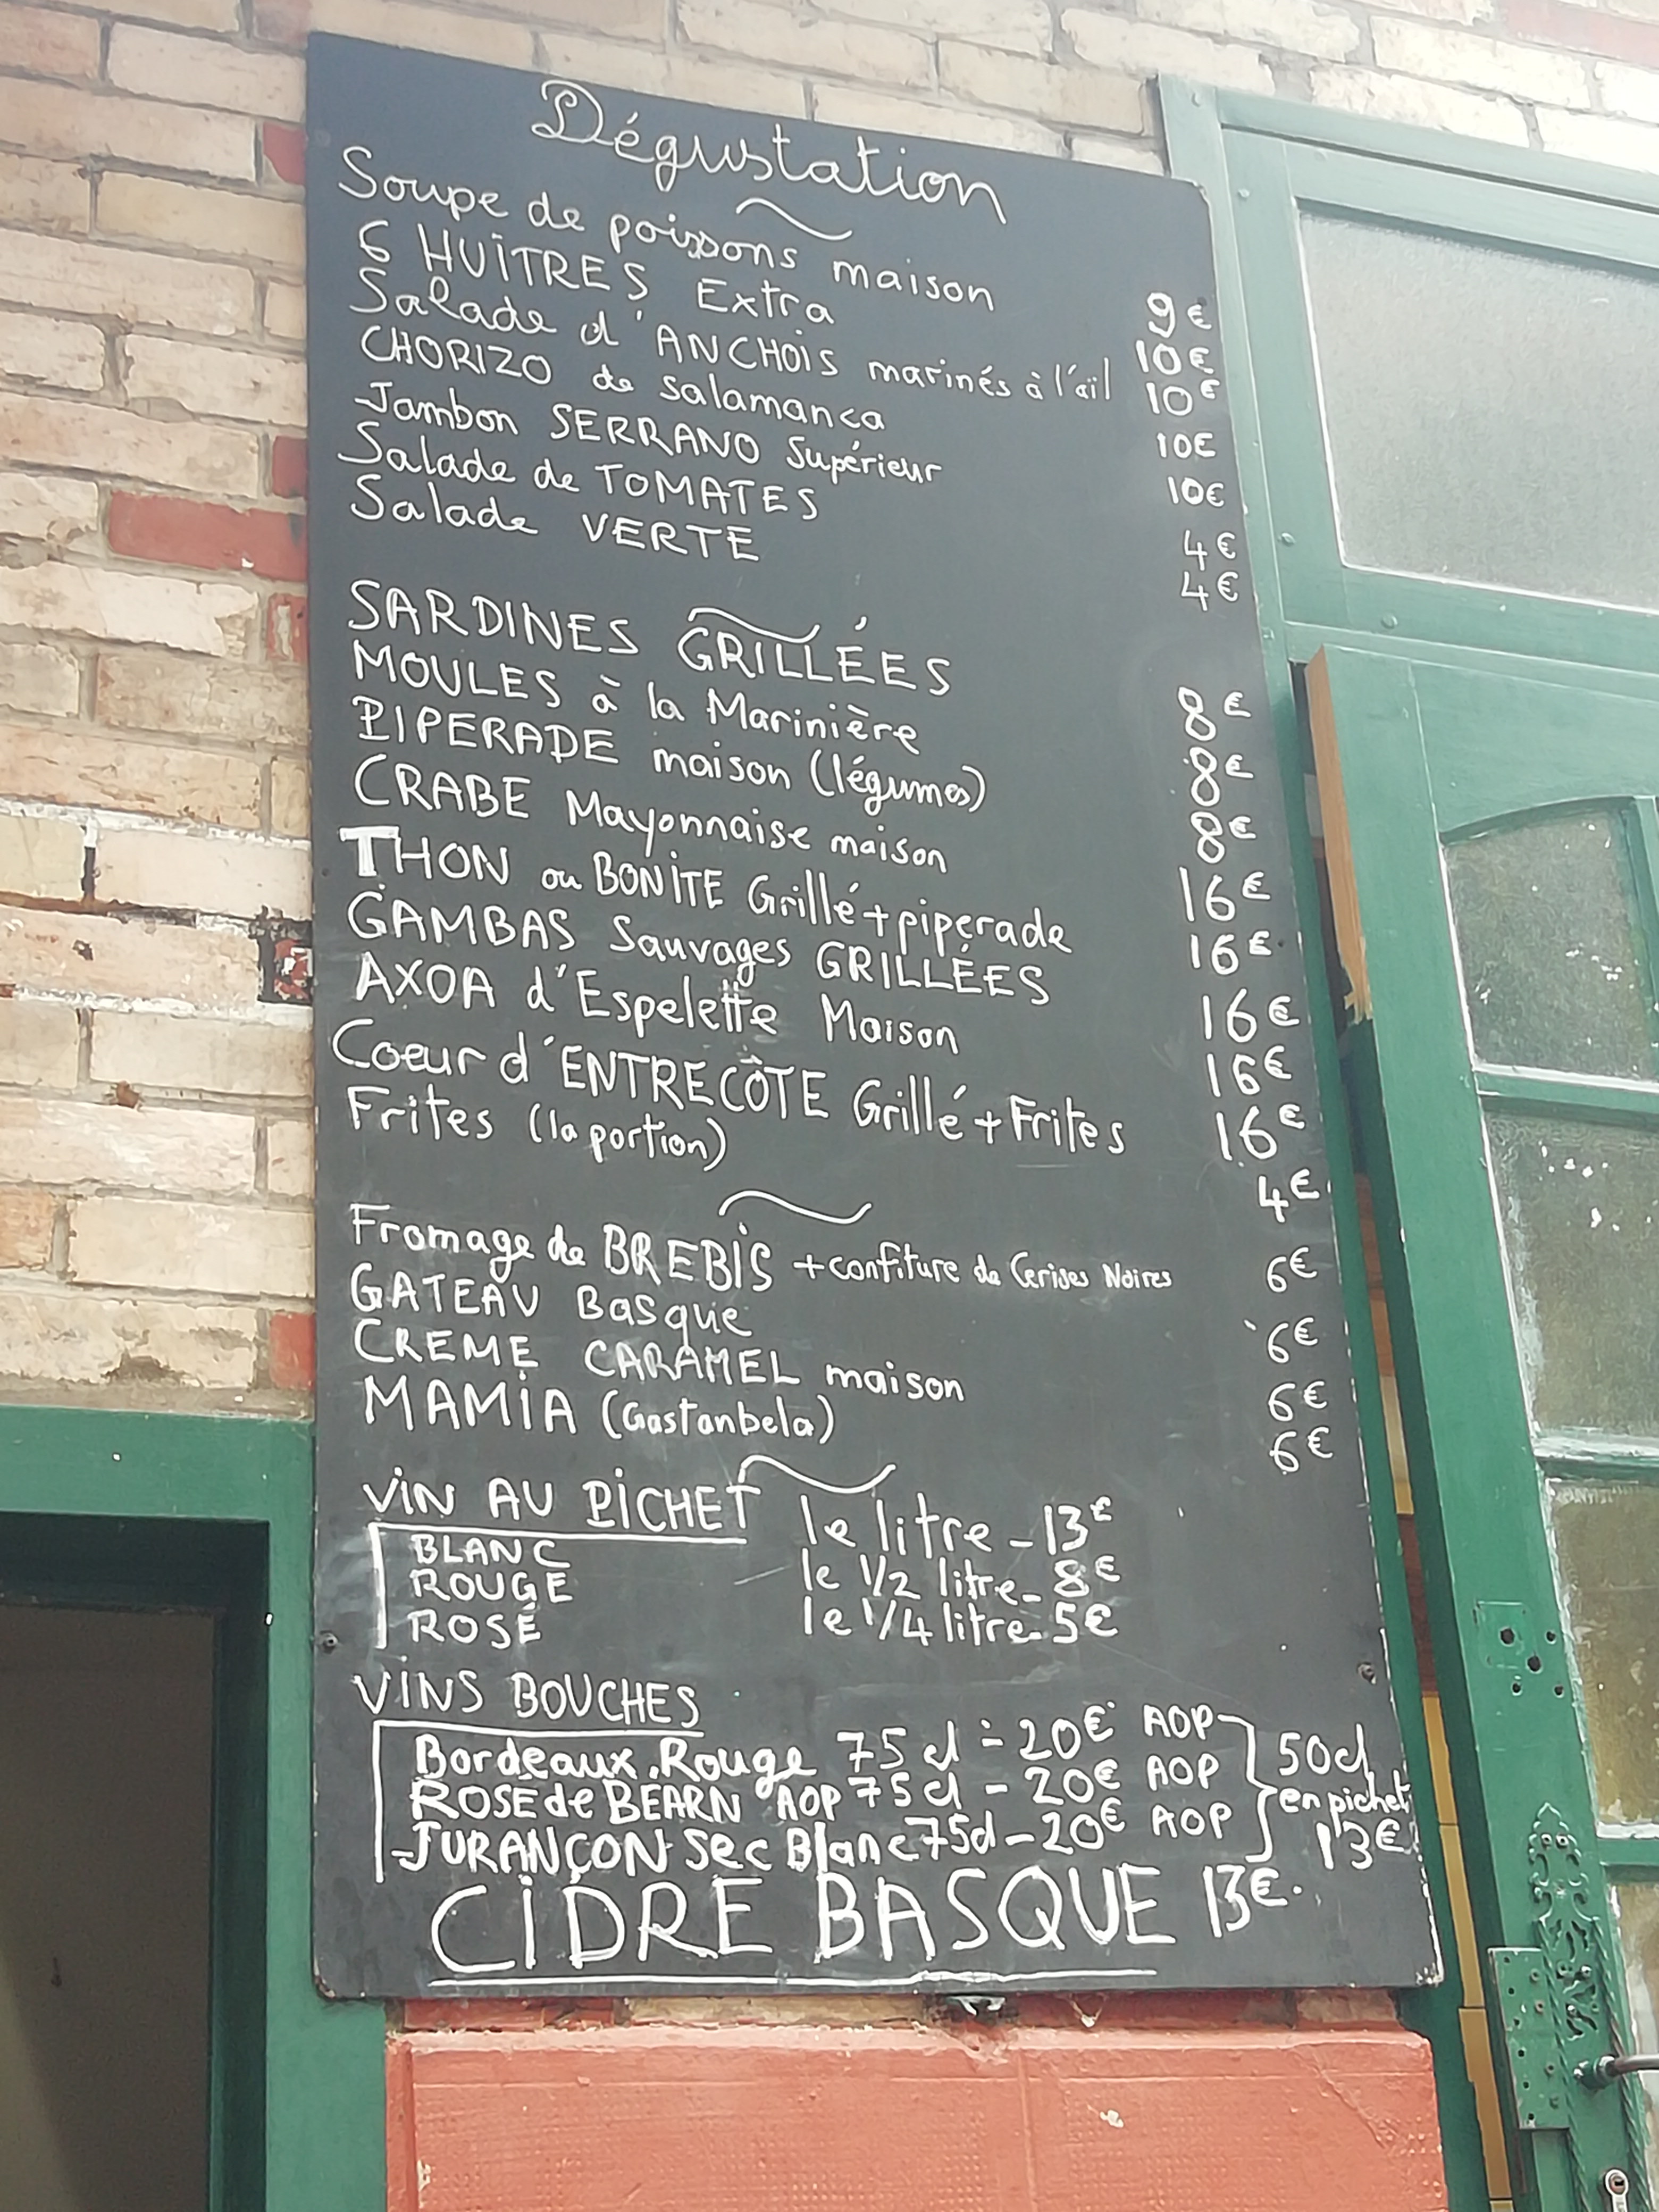 Dégustation
Soupe de poissons maison 9€
6 HUITRES Extra 10€
Salade d'ANCHOIS marinés à l'aïl 10€
CHORIZO de Salamanca 10€
Jambon SERRANO Supérieur 10€
Salade de TOMATES 4€
Salade VERTE 4€
SARDINES GRILLÉES 8€
MOULES à la Marinière 8€
PIPERADE maison (légumes) 8€
CRABE Mayonnaise maison 16€
THON ou BONITE Grillé + piperade 16€
GAMBAS Sauvages GRILLÉES 16€
AXOA d'Espelette Maison 16€
Coeur d'ENTRECÔTE Grillé + Frites 16€
Frites (la portion) 4€
Fromage de BREBIS + confiture de Cerises Noires 6€
GATEAU Basque 6€
CREME CARAMEL maison 6€
MAMIA (Gastanbela) 6€
VIN AU PICHET le litre - 13€
BLANC
ROUGE le 1/2 litre - 8€
ROSÉ le 1/4 litre - 5€
VINS BOUCHES
Bordeaux Rouge 75cl - 20€ AOP
ROSÉ de BEARN AOP 75cl - 20€ AOP
JURANÇON Sec Blanc 75cl - 20€ AOP
50cl
en pichet
13€
CIDRE BASQUE 13€